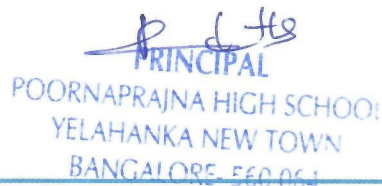 PRINCIPAL
POORNAPRAJNA HIGH SCHOOL
YELAHANKA NEW TOWN
BANGALORE- 560 064